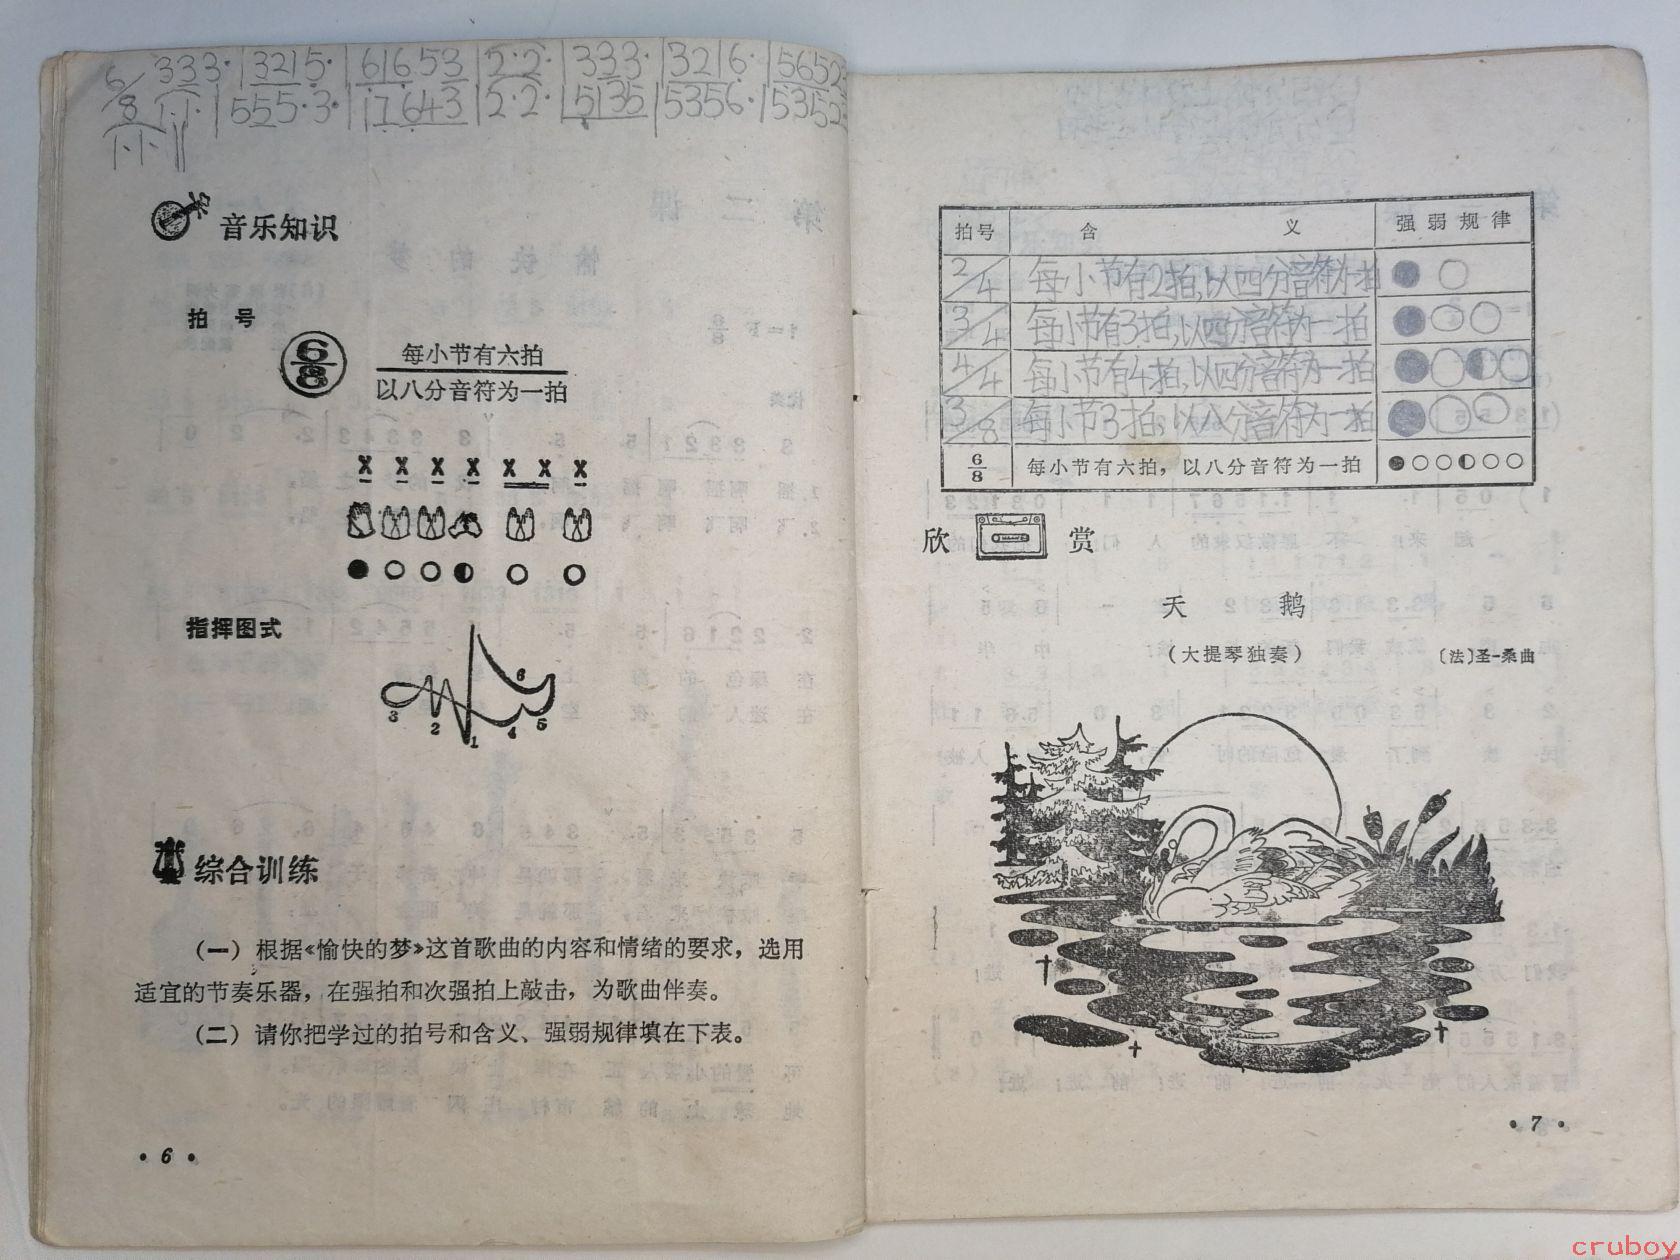 6/8 333· | 3215· | 61653 | 2·2· | 333· | 3216· | 5652
1·1· | 555·3· | 17643 | 2·2· | 5135 | 5356· | 5352
1·1·
音乐知识
拍 号
6/8 每小节有六拍
以八分音符为一拍
X X X X X X X
指挥图式
1 2 3 4 5 6
综合训练
(一) 根据《愉快的梦》这首歌曲的内容和情绪的要求，选用
适宜的节奏乐器，在强拍和次强拍上敲击，为歌曲伴奏。
(二) 请你把学过的拍号和含义、强弱规律填在下表。
• 6 •
拍号 含 义 强弱规律
2/4 每小节有2拍,以四分音符为一拍 ● ○
3/4 每小节有3拍,以四分音符为一拍 ● ○ ○
4/4 每小节有4拍,以四分音符为一拍 ● ○ ◐ ○
3/8 每小节3拍,以八分音符为一拍 ● ○ ○
6/8 每小节有六拍，以八分音符为一拍 ●○○◐○○
欣 赏
天 鹅
(大提琴独奏) 〔法〕圣-桑曲
• 7 •
cruboy